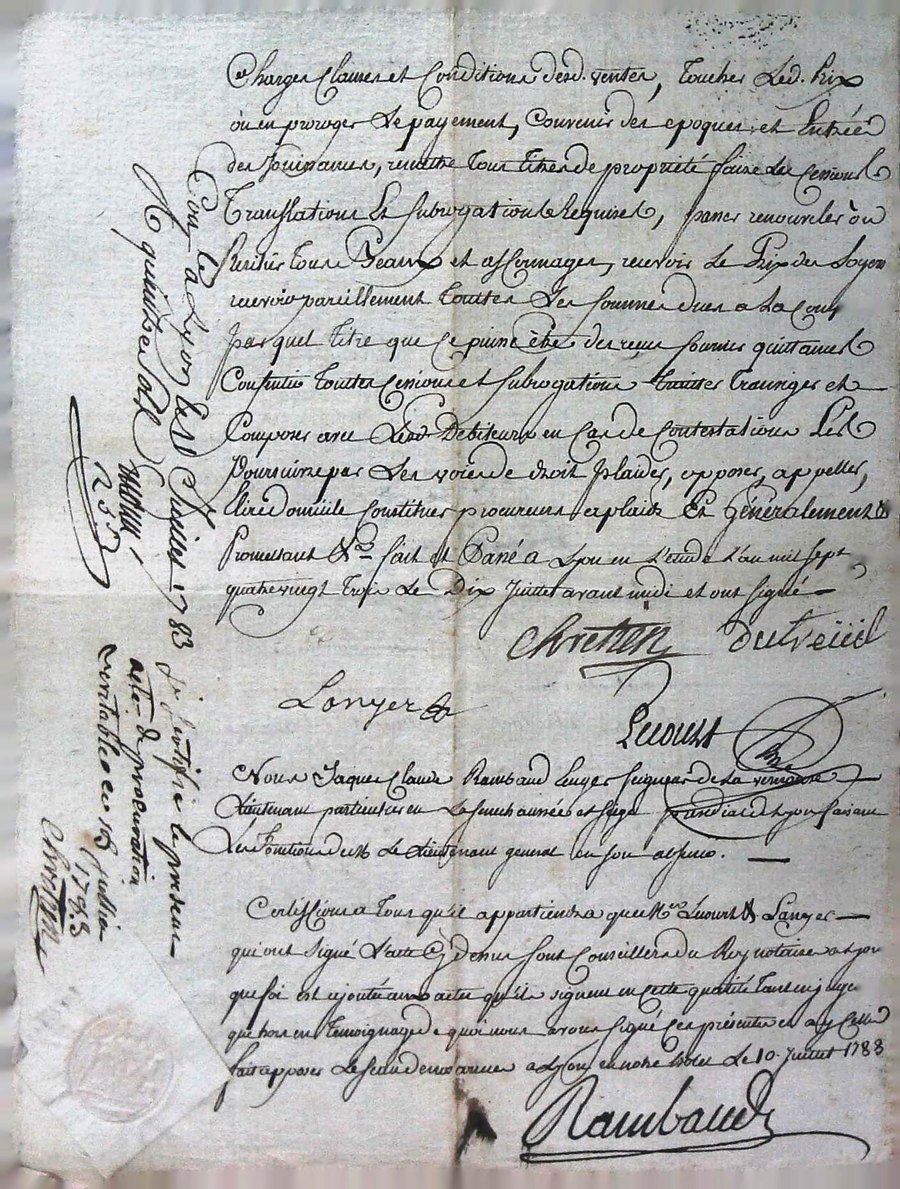 Charges Clauses et Conditions desd. ventes, Toucher Led. Prix
ou en proroger Le payement, Convenir des epoques et Entrée
des Jouissances, remettre tous titres de propriété faire les Cessions
Translations Et Subrogations Requises, passer renouveler ou
resilier tous Beaux et assennages, recevoir Le Prix des Loyers
recevoir pareillement Touttes Les sommes dues a La Cont.
par quel titre que Ce puisse être, des reçus fournir quittances
Consentir Touttes Cessions et Subrogations Traiter Transiger et
Composer avec Lesd. Debiteurs en Cas de Contestations Les
Poursuivre par Les voies de droit plaider, opposer, appeller,
Elire domicile Constituer procureurs a plaids Et Généralement &
Promettant &a. fait et Passé a Lyon en L'étude L'an mil sept
quatre vingt Trois Le Dix Juillet avant midi et ont signé
Chretien Dutreüil
Lanyer
Lecourt
Nous Jaques Claude Rambaud Ecuyer Seigneur de La
Lieutenant particulier en La Senechaussée et Siege presidial de Lyon faisant
Les fonctions de M. Le Lieutenant general en son absence.
Certiffions a Tous qu'il appartiendra que Mes Lecourt & Lanyer
qui ont signé L'acte Cy dessus sont Conseillers du Roy notaires a Lyon
que foi est ajoutée aux actes qu'ils signent en cette qualité Tant en juge.
que hors en Temoignage de quoi nous avons signé Ces présentes et a y Celles
fait apposer Le sceau de nos armes a Lyon en notre hotel Le 10. Juillet 1783
Rambaud
Con. les a Lyon Le 10 Juillet 1783
R quinze sols
je certifie le présent
acte de procuration
veritable ce 18 juillet
1783
Chretien